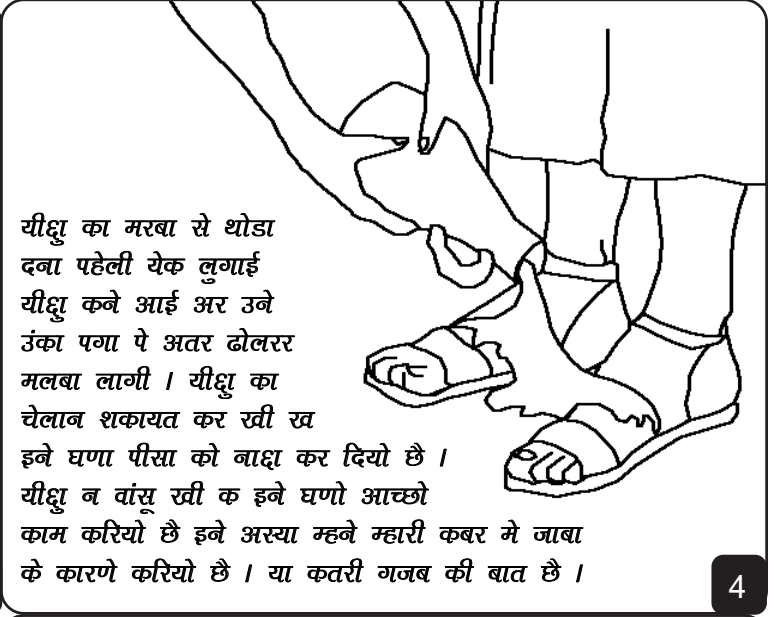 यीक्षु का मरबा से थोडा
दना पहेली येक लुगाई
यीक्षु कने आई अर उने
उंका पगा पे अतर ढोलरर
मलबा लागी । यीक्षु का
चेलान शकायत कर खी ख
इने घणा पीसा को नाद्दा कर दियो छै ।
यीक्षु न वांसू खी क इने घणो आच्छो
काम करियो छै इने अस्या म्हने म्हारी कबर मे जाबा
के कारणे करियो छै । या कतरी गजब की बात छै ।
4